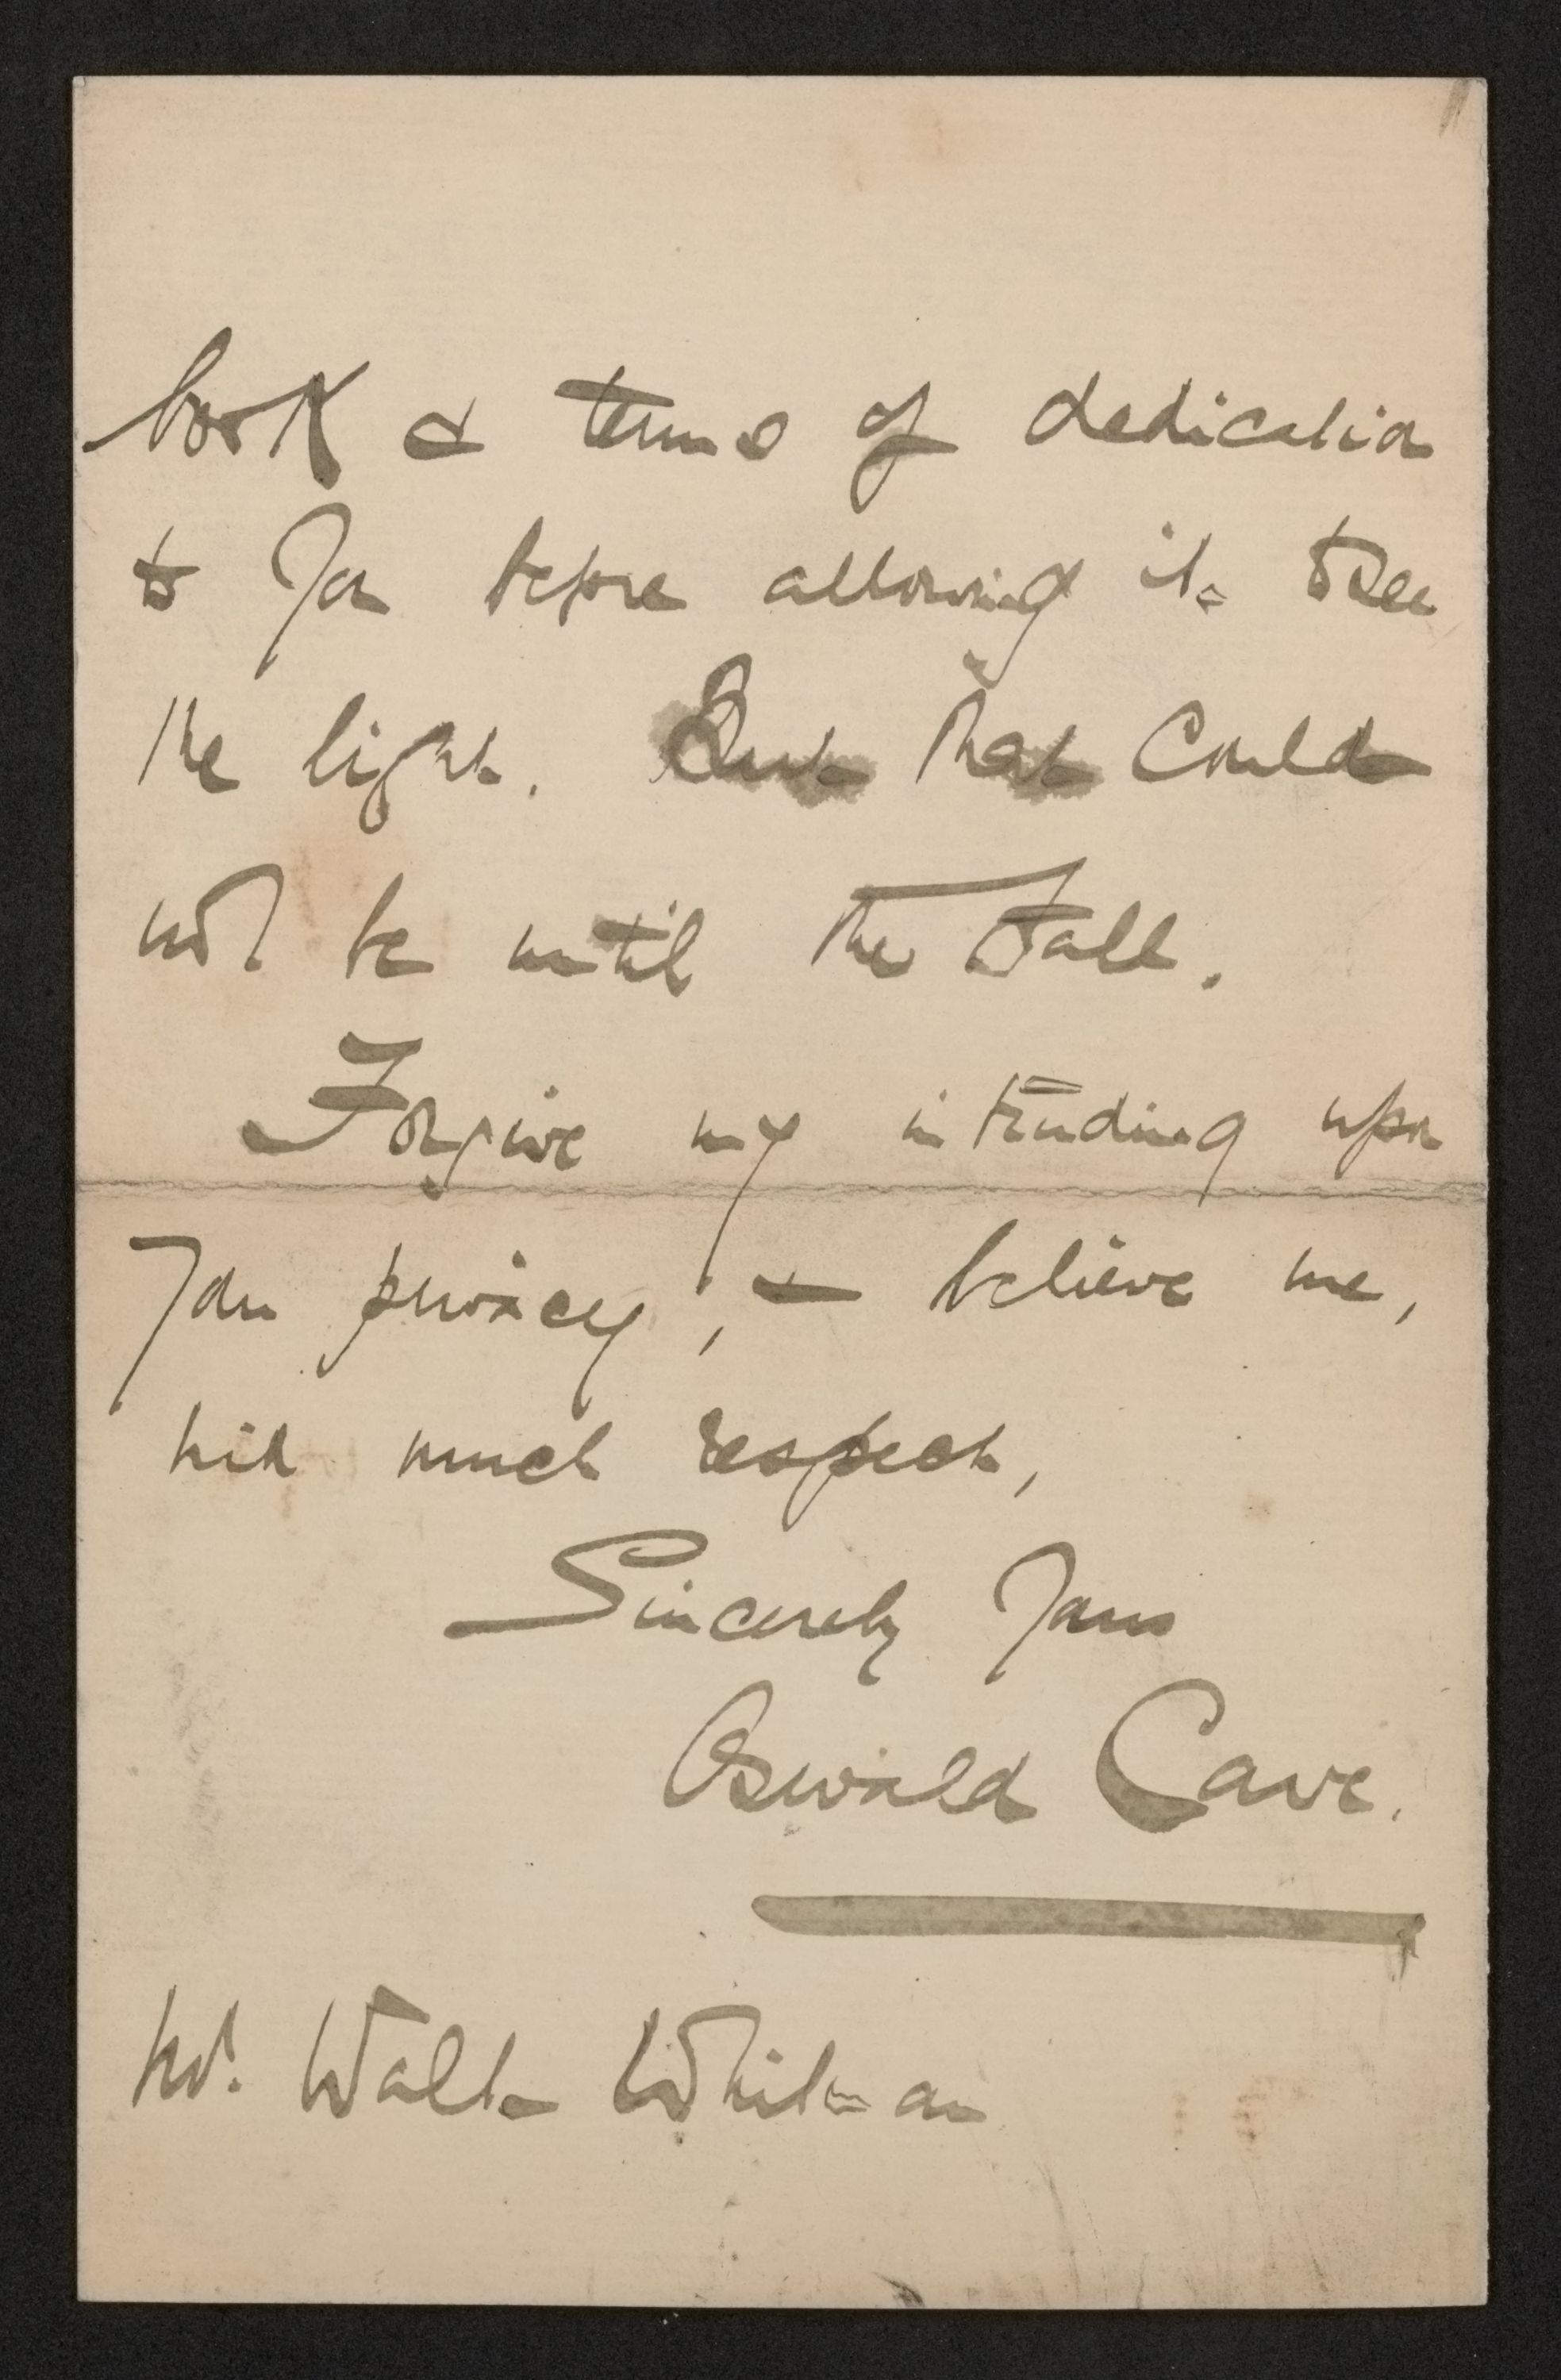 book & terms of dedication
to You before allowing it to see
the light. But that could
not be until the Fall.
Forgive my intruding upon
Your privacy, & believe me,
with much respect,
Sincerely Yours
Oswald Cave.
Mr. Walt Whitman